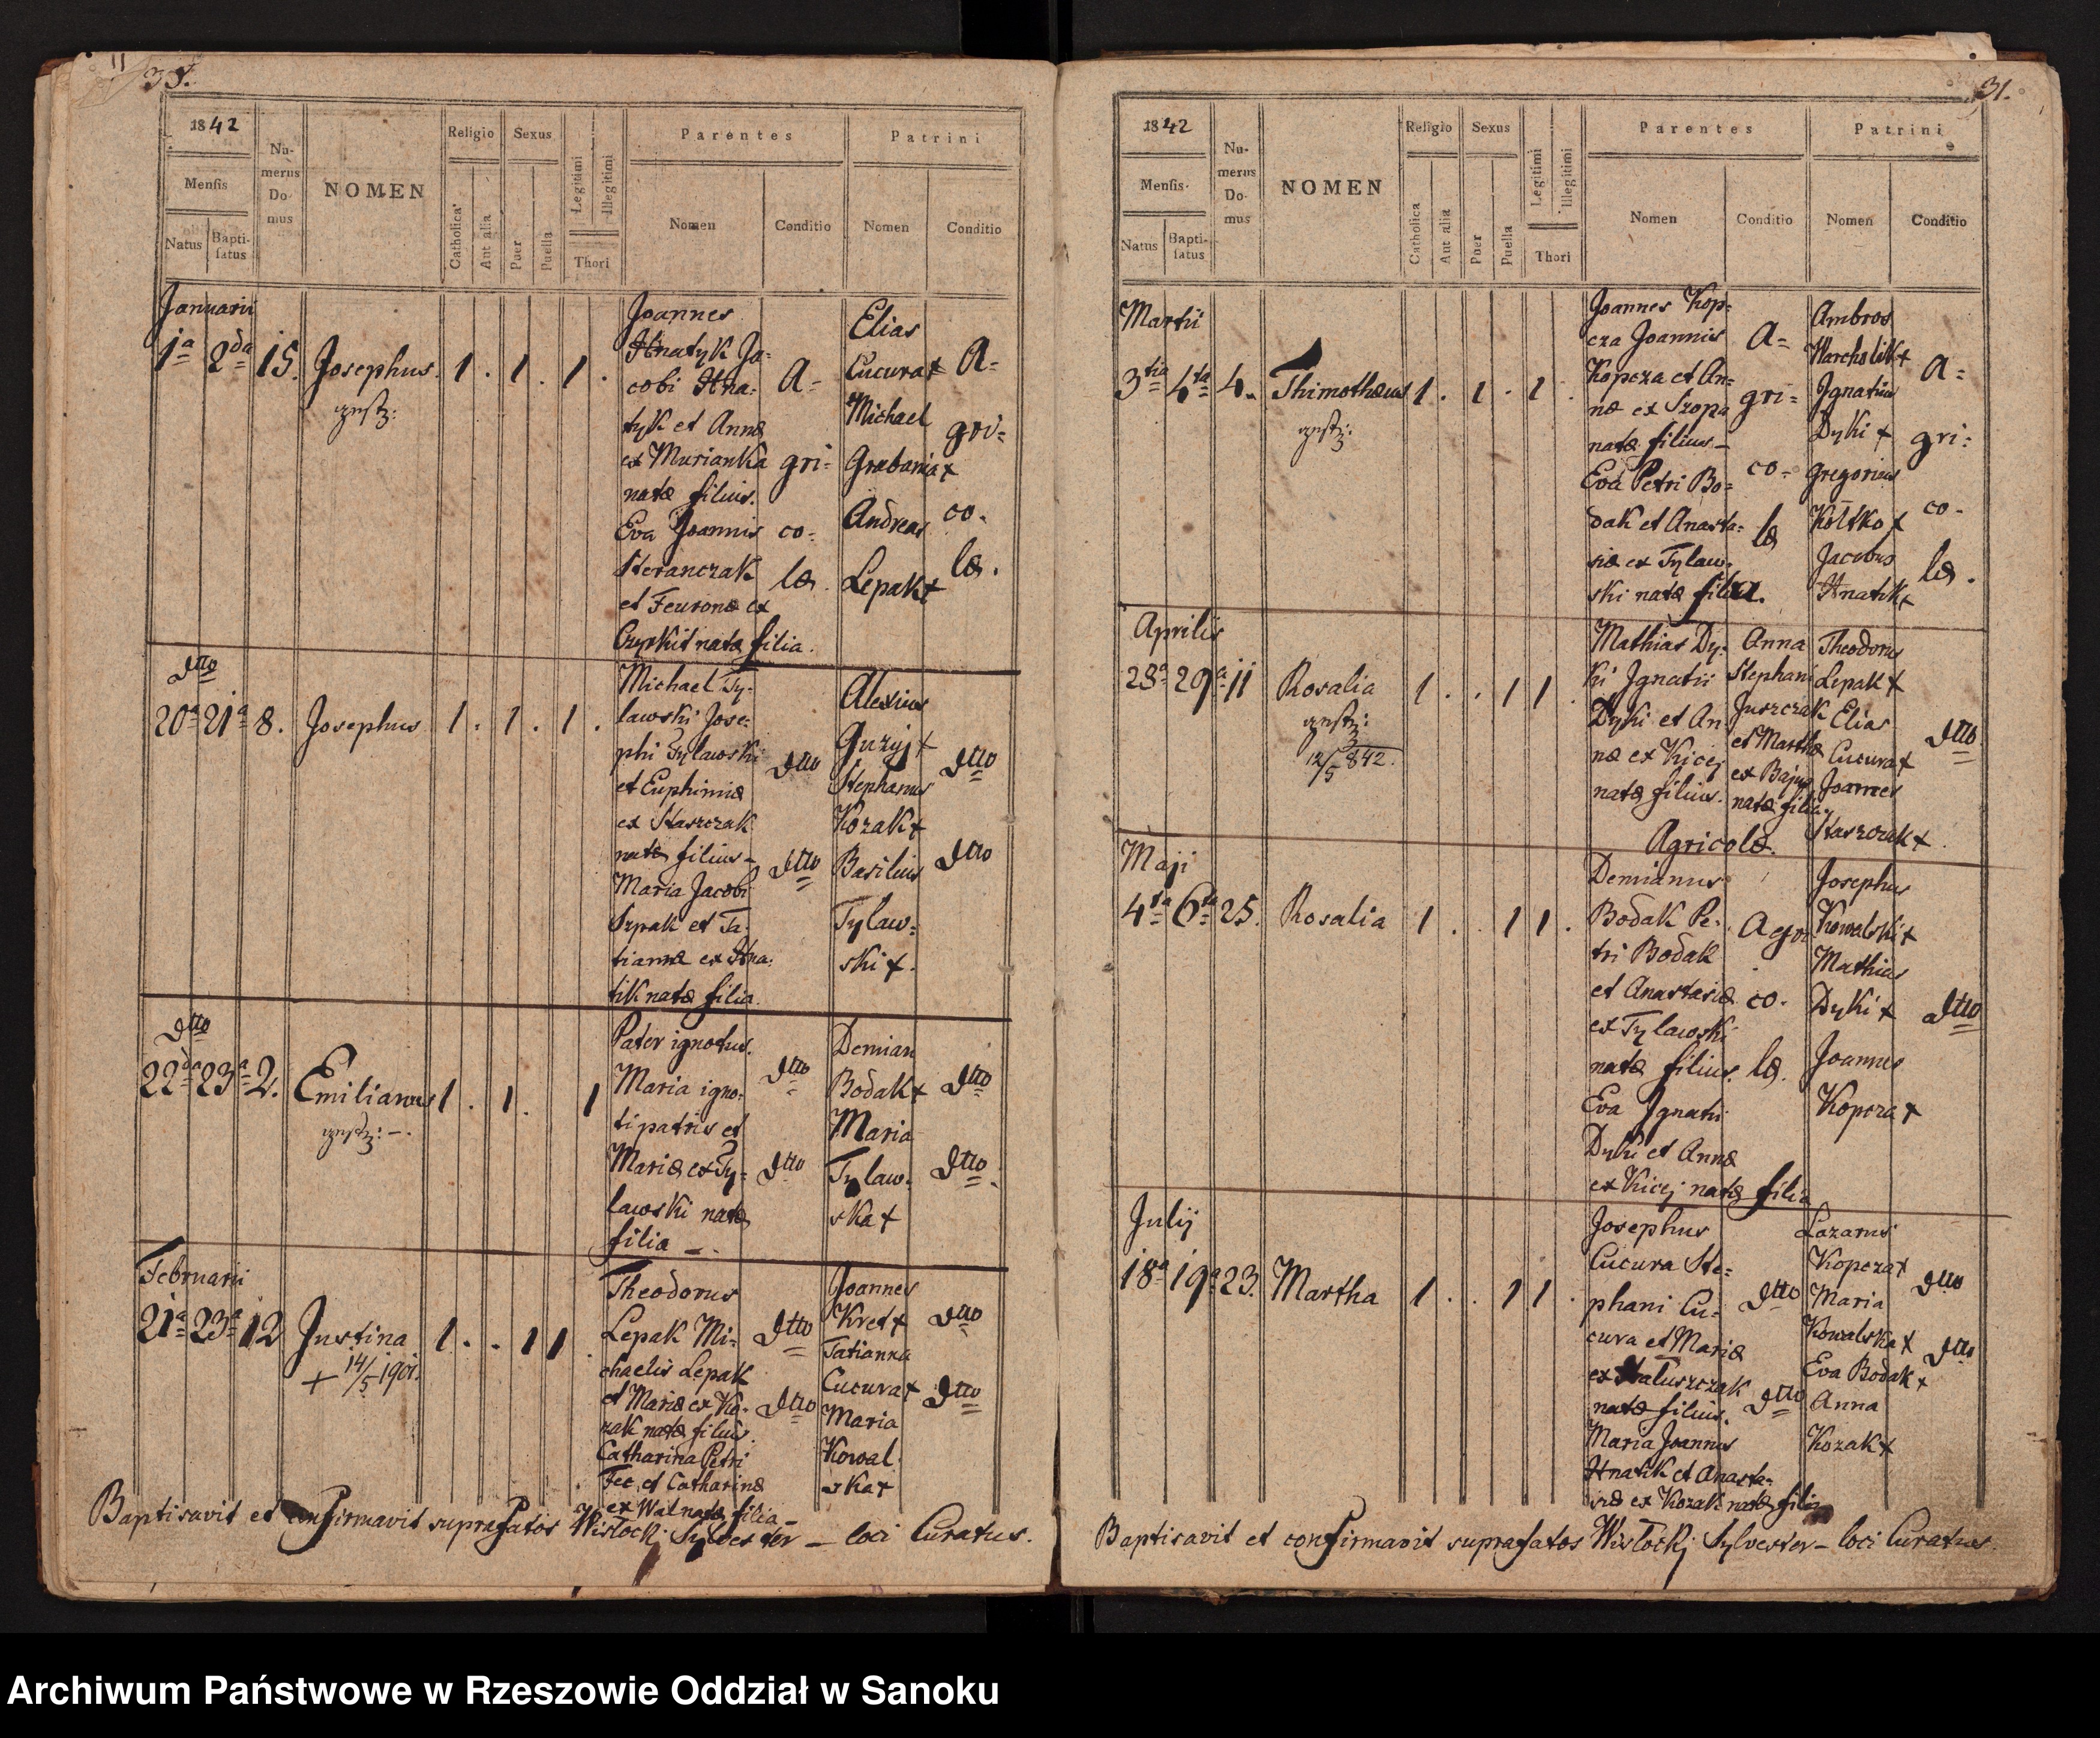 1842
Mensis
Natus
Baptisatus
Numerus Domus
NOMEN
Religio
Catholica
Aut alia
Sexus
Puer
Puella
Legitimi
Illegitimi
Thori
Parentes
Nomen
Conditio
Patrini
Nomen
Conditio
Januarii
1a 2da 15. Josephus. 1 . 1 . 1 .
Joannes
Hnatyk Ja=
cobi Hna=
tyk et Annæ
ex Murianka
natæ filius.
Eva Joannis
Steranczak
et Feuronæ ex
Czyrkit natæ filia.
A=
gri=
co=
læ.
Elias
Cucura +
Michael
Grabania +
Andreas
Lepak +
A=
gri=
co=
læ.
dtto
20a 21a 8. Josephus 1 . 1 . 1 .
Michael Ty=
lawski Jose=
phi Tylawski
et Euphimiæ
ex Staszczak
natæ filius –
Maria Jacobi
Szpak et Ta=
tiannæ ex Hna=
tik natæ filia.
dtto
dtto
Alexius
Guzyj +
Stephanus
Kozak +
Basilius
Tylaw=
ski +.
dtto
dtto
dtto
22da 23a 2. Emilianus 1 . 1 . 1
Pater ignotus.
Maria igno=
ti patris et
Mariæ ex Ty=
lawski natæ
filia –.
dtto
dtto
Demian
Bodak +
Maria
Tylaw=
ska +
dtto
dtto.
Februarii
21a 23a 12 Justina 1 . . 1 1 .
+ 14/5 1901.
Theodorus
Lepak Mi=
chaelis Lepak
et Mariæ ex Ko=
zak natæ filius.
Catharina Petri
Fec et Catharinæ
ex Wal natæ filia –
dtto
dtto
Joannes
Kret +
Tatianna
Cucura +
Maria
Kowal=
ska +
dtto
dtto
Baptisavit et confirmavit suprafatos Wisłocki Sylvester – loci Curatus.
31.
1842
Mensis
Natus
Baptisatus
Numerus Domus
NOMEN
Religio
Catholica
Aut alia
Sexus
Puer
Puella
Legitimi
Illegitimi
Thori
Parentes
Nomen
Conditio
Patrini
Nomen
Conditio
Martii
3tia 4ta 4. Thimothæus 1 . 1 . 1 .
Joannes Kop=
cza Joannis
Kopcza et An=
næ ex Szopa
natæ filius –
Eva Petri Bo=
dak et Anasta=
siæ ex Tylaw=
ski natæ filia.
A=
gri=
co=
læ
Ambros
Warcholik +
Ignatius
Dyki +
Gregorius
Koltko +
Jacobus
Hnatik +
A=
gri=
co=
læ.
Aprilis
28a 29a 11 Rosalia 1 . . 1 1 .
12/5 842.
Mathias Dy=
ki Ignatii
Dyki et An=
næ ex Kicej
natæ filius.
Anna
Stephani
Juszczak
et Marthæ
ex Bajus
natæ filia
Agricolæ.
Theodorus
Lepak +
Elias
Cucura +
Joannes
Staszczak +
dtto
Maji
4ta 6ta 25. Rosalia 1 . . 1 1 .
Demianus
Bodak Pe=
tri Bodak
et Anastasiæ
ex Tylawski
natæ filius.
Eva Ignatii
Dyki et Annæ
ex Kicej natæ filia
Agri
co=
læ.
Josephus
Kowalski +
Mathias
Dyki +
Joannes
Kopcza +
dtto
Julij
18a 19a 23. Martha 1 . . 1 1 .
Josephus
Cucura Ste=
phani Cu=
cura et Mariæ
ex Matuszczak
natæ filius.
Maria Joannis
Hnatik et Anasta=
siæ ex Kozak natæ filia
dtto
dtto
Lazarus
Kopcza +
Maria
Kowalska +
Eva Bodak +
Anna
Kozak +
dtto
dtto
Baptisavit et confirmavit suprafatos Wisłockj Sylvester – loci Curatus.
Archiwum Państwowe w Rzeszowie Oddział w Sanoku